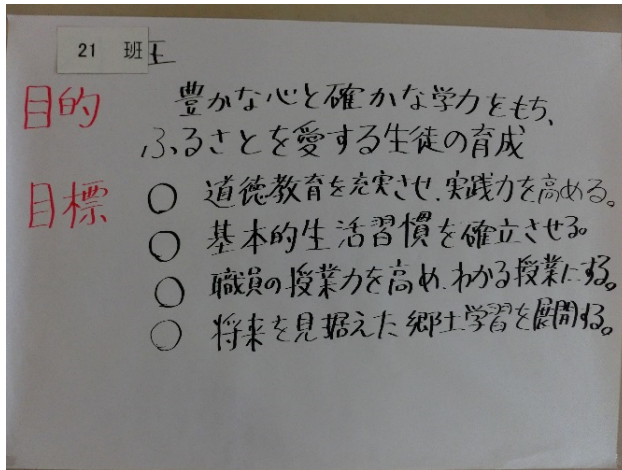 21 班
目的 豊かな心と確かな学力をもち、
ふるさとを愛する生徒の育成
目標 ○ 道徳教育を充実させ、実践力を高める。
○ 基本的生活習慣を確立させる。
○ 職員の授業力を高め、わかる授業にする。
○ 将来を見据えた郷土学習を展開する。